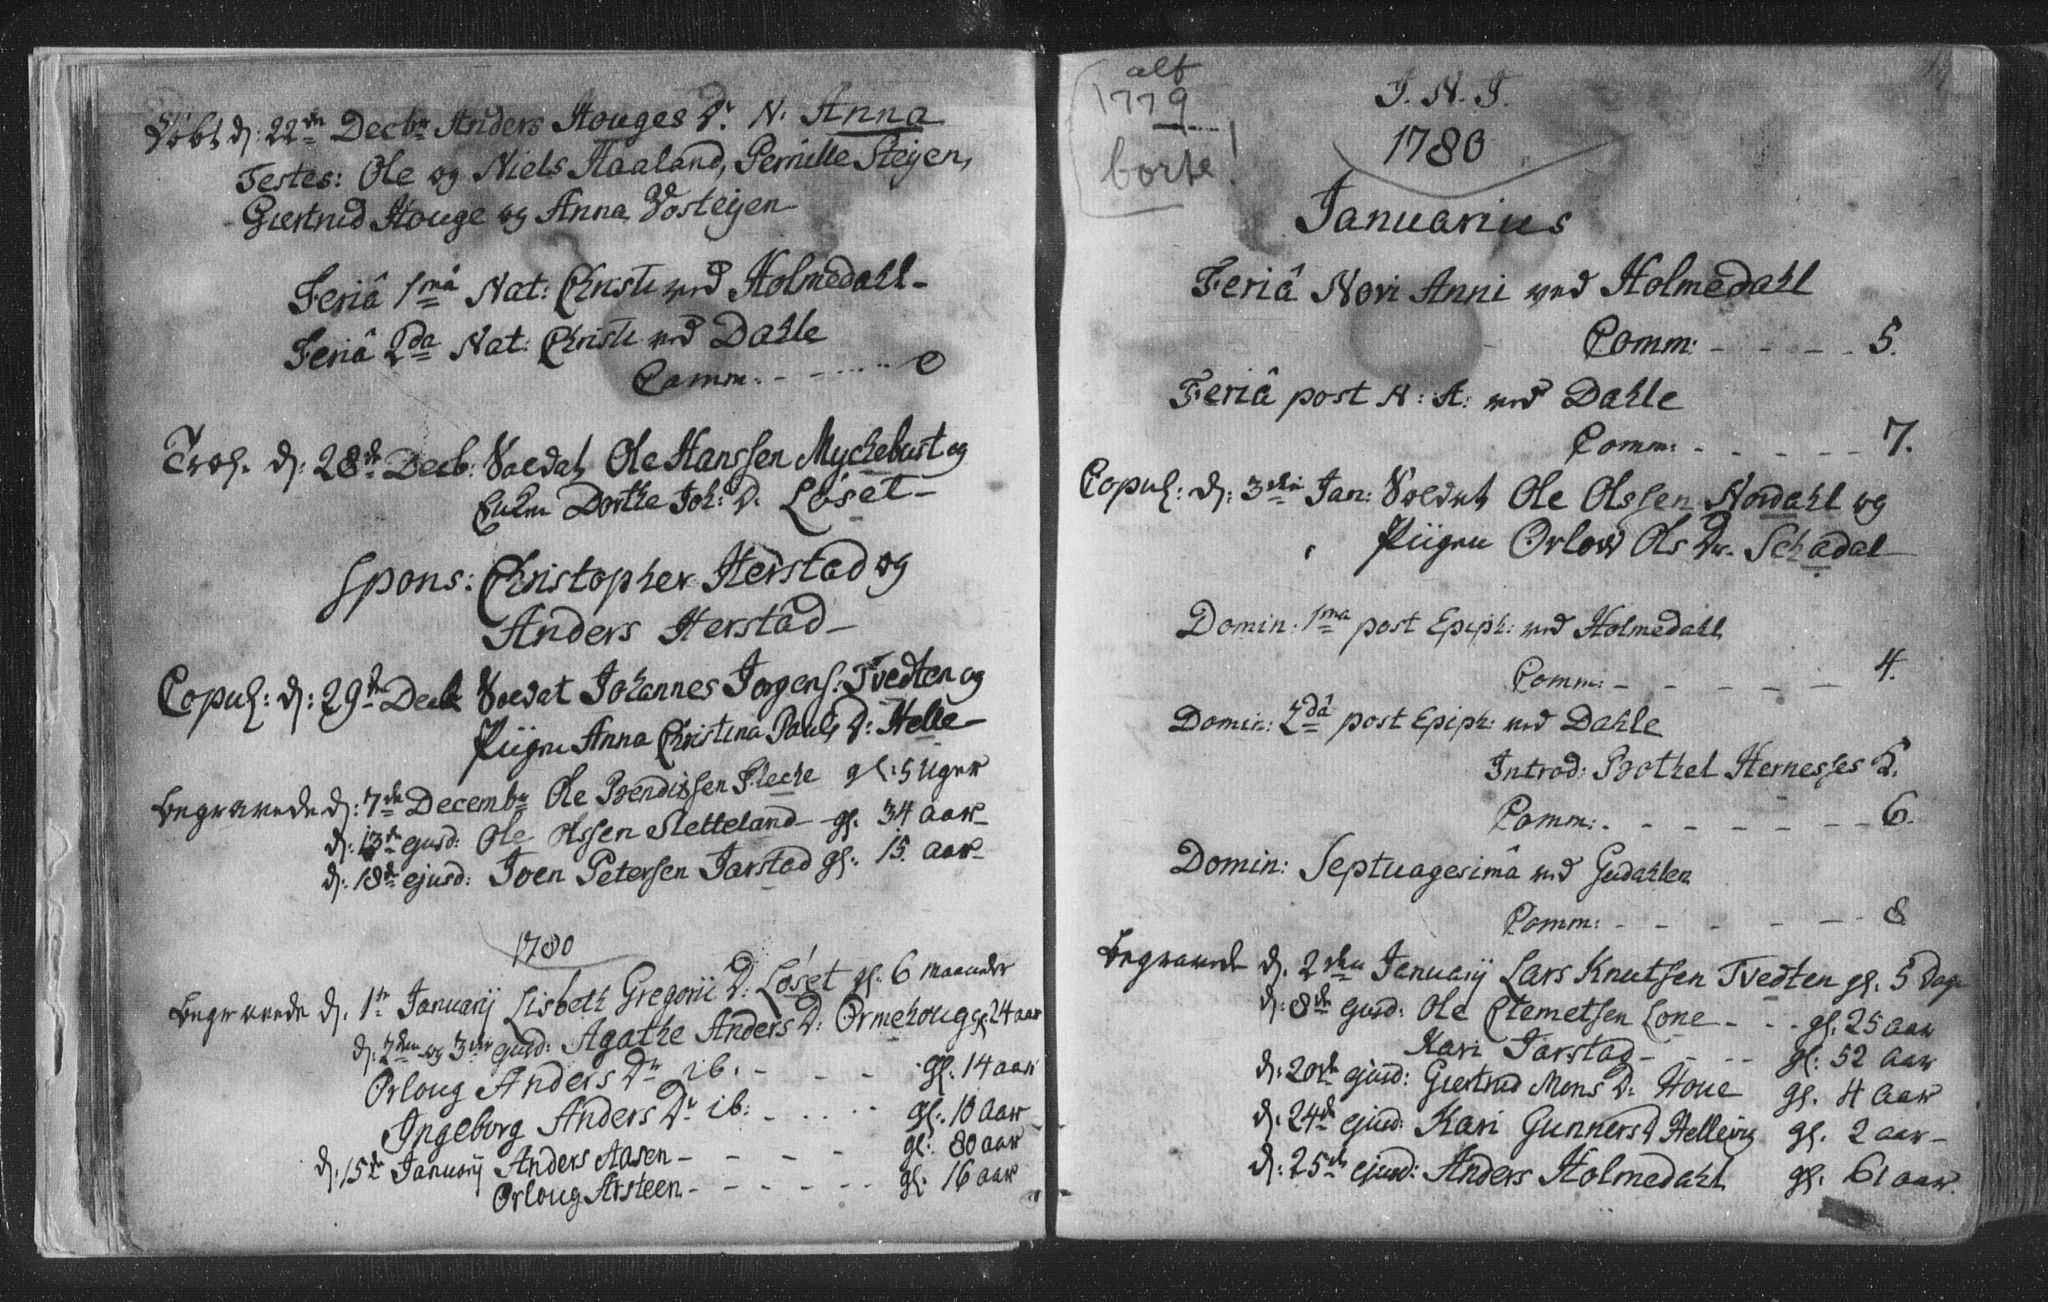 Døbt d: 22de Decbr Anders Houges Dr. N. Anna
Testes: Ole og Niels Haaland, Pernille Steyen,
Giertrud Houge og Anna Vosteyen
Feriâ 1mâ Nat: Christi ved Holmedahl
Feriâ 2da Nat: Christi ved Dahle
Comm: - - - - - 0
Trol. d: 28de Decb: Soldat Ole Hanssen Myckebust og
Enken Dorthe Joh: D. Løset
Spons: Christopher Herstad og
Anders Herstad
Copul: d: 29de Decb Soldat Johannes Jørgens: Tvedten og
Piigen Anna Christina Pauls D: Helle
Begravede d: 7de Decembr Ole Bendixsen Fleche gl: 5 Uger
d: 13de ejusd: Ole Olssen Sletteland gl. 34 aar
d: 18de ejusd: Joen Petersen Jarstad gl: 15 aar
1780
Begravede d. 1te Januarij Lisbeth Gregorii D: Løset gl: 6 Maaneder
d: 2den og 3die ejusd: Agathe Anders D: Ormehoug gl 24 aar
Orloug Anders Dr ib. - - - gl. 14 aar
Ingeborg Anders Dr ib: - - - gl. 10 aar
d. 15de Januarij Anders Aasen - - - - gl: 80 aar
Orloug Arsteen - - - - - gl. 16 aar
alt
1779
borte!
19
J. N. J.
1780
Januarius
Feriâ Novi Anni ved Holmedahl
Comm: - - - - 5.
Feriâ post N: A: ved Dahle
Comm: - - - - - 7.
Copul: d: 3die Jan: Soldat Ole Olssen Nordahl og
Piigen Orlow Ols Dr. Schadal
Domin: 1ma post Epiph: ved Holmedahl
Comm: - - - - - 4.
Domin: 2dâ post Epiph: ved Dahle
Introd: Bothel Hernesses
Comm: - - - - - - 6.
Domin: Septuagesimâ ved Gudahlen
Comm: - - - - - - 8
Begravede d. 2den Januarij Lars Knutsen Tvedten gl. 5 Dage
d: 8de ejusd: Ole Clemetsen Lone - - - gl. 25 aar
Kari Jarstad - - - gl: 52 aar
d: 20de ejusd: Giertrud Mons D: Hove gl. 4 aar
d. 24de ejusd: Kari Gunners D Hellevig gl. 2 aar
d: 25de ejusd: Anders Holmedahl gl. 61 aar.